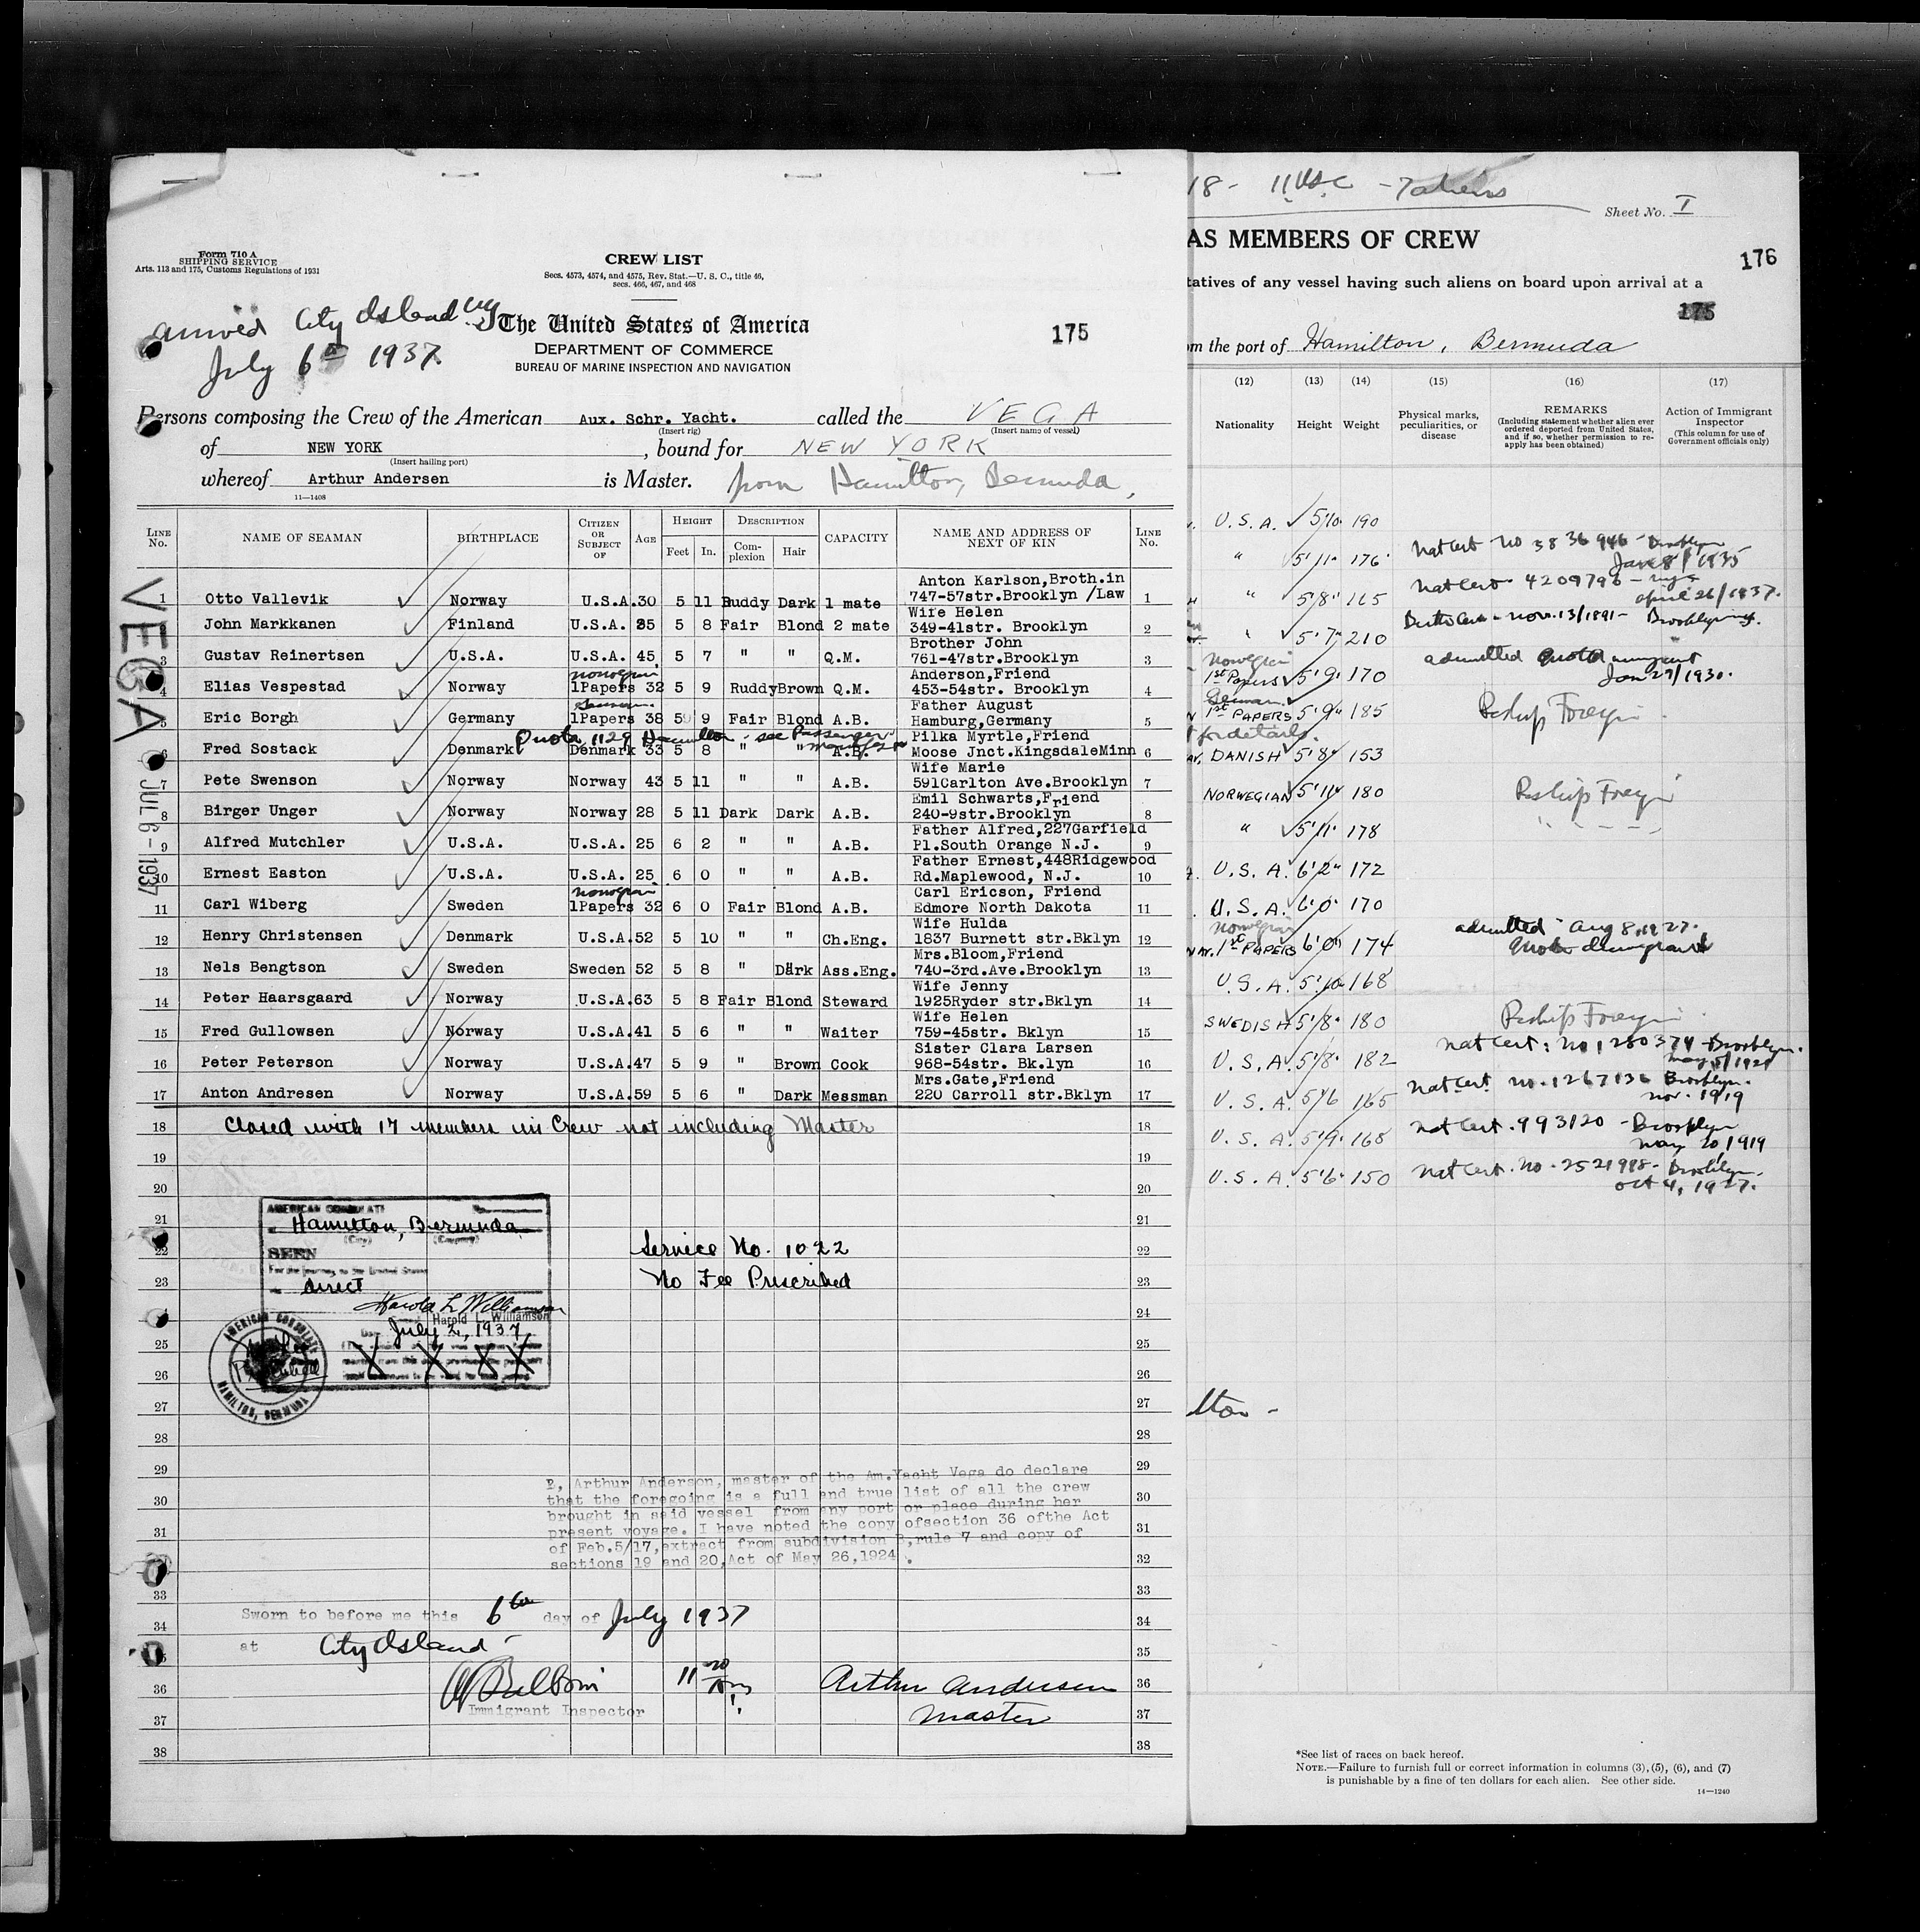 Form 710 A
SHIPPING SERVICE
Arts. 113 and 175, Customs Regulations of 1931
CREW LIST
Secs. 4573, 4574, and 4575, Rev. Stat.—U. S. C., title 46,
secs. 466, 467, and 468
arrived City Island NY
July 6th 1937
The United States of America
DEPARTMENT OF COMMERCE
BUREAU OF MARINE INSPECTION AND NAVIGATION
175
Persons composing the Crew of the American Aux. Schr. Yacht. called the VEGA
(Insert rig) (Insert name of vessel)
of NEW YORK , bound for NEW YORK
(Insert hailing port)
whereof Arthur Andersen is Master. from Hamilton, Bermuda,
11—1408
LINE No. NAME OF SEAMAN BIRTHPLACE CITIZEN OR SUBJECT OF AGE HEIGHT Feet In. DESCRIPTION Complexion Hair CAPACITY NAME AND ADDRESS OF NEXT OF KIN LINE No.
VEGA
JUL 6-1937
Anton Karlson,Broth.in
1 Otto Vallevik Norway U.S.A. 30 5 11 Ruddy Dark 1 mate 747-57str.Brooklyn /Law 1
Wife Helen
2 John Markkanen Finland U.S.A. 35 5 8 Fair Blond 2 mate 349-41str. Brooklyn 2
Brother John
3 Gustav Reinertsen U.S.A. U.S.A. 45 5 7 " " Q.M. 761-47str.Brooklyn 3
norwegian Anderson,Friend
4 Elias Vespestad Norway 1Papers 32 5 9 Ruddy Brown Q.M. 453-54str. Brooklyn 4
German. Father August
5 Eric Borgh Germany 1Papers 38 5 9 Fair Blond A.B. Hamburg,Germany 5
Quota 1129 Hamilton - see Passenger manifest Pilka Myrtle,Friend
6 Fred Sostack Denmark Denmark 33 5 8 " " A.B. Moose Jnct.KingsdaleMinn 6
Wife Marie
7 Pete Swenson Norway Norway 43 5 11 " " A.B. 591Carlton Ave.Brooklyn 7
Emil Schwarts,Friend
8 Birger Unger Norway Norway 28 5 11 Dark Dark A.B. 240-9str.Brooklyn 8
Father Alfred,227Garfield
9 Alfred Mutchler U.S.A. U.S.A. 25 6 2 " " A.B. Pl.South Orange N.J. 9
Father Ernest,448Ridgewood
10 Ernest Easton U.S.A. U.S.A. 25 6 0 " " A.B. Rd.Maplewood, N.J. 10
norwegian Carl Ericson, Friend
11 Carl Wiberg Sweden 1Papers 32 6 0 Fair Blond A.B. Edmore North Dakota 11
Wife Hulda
12 Henry Christensen Denmark U.S.A. 52 5 10 " " Ch.Eng. 1837 Burnett str.Bklyn 12
Mrs.Bloom,Friend
13 Nels Bengtson Sweden Sweden 52 5 8 " Dark Ass.Eng. 740-3rd.Ave.Brooklyn 13
Wife Jenny
14 Peter Haarsgaard Norway U.S.A. 63 5 8 Fair Blond Steward 1925Ryder str.Bklyn 14
Wife Helen
15 Fred Gullowsen Norway U.S.A. 41 5 6 " " Waiter 759-45str. Bklyn 15
Sister Clara Larsen
16 Peter Peterson Norway U.S.A. 47 5 9 " Brown Cook 968-54str. Bk.lyn 16
Mrs.Gate,Friend
17 Anton Andresen Norway U.S.A. 59 5 6 " Dark Messman 220 Carroll str.Bklyn 17
18 Closed with 17 members in Crew not including Master 18
19 19
20 20
AMERICAN CONSULATE
21 Hamilton, Bermuda 21
(City) (Country)
22 SEEN Service No. 1022 22
For the journey to the United States
23 direct No Fee Prescribed 23
Harold L. Williamson
24 Harold L. Williamson 24
July 2, 1937
25 25
26 26
AMERICAN CONSULATE
No Fee Prescribed
HAMILTON, BERMUDA
27 27
28 28
29 29
I, Arthur Anderson, master of the Am.Yacht Vega do declare
30 that the foregoing is a full and true list of all the crew 30
brought in said vessel from any port or place during her
31 present voyage. I have noted the copy ofsection 36 ofthe Act 31
of Feb.5/17,extract from subdivision B,rule 7 and copy of
32 sections 19 and 20,Act of May 26,1924. 32
33 33
34 Sworn to before me this 6th day of July 1937 34
at City Island - 35
36 11 20 Arthur Andersen 36
Immigrant Inspector
37 Master 37
38 38
18- 11 USC - 7 aliens
Sheet No. I
AS MEMBERS OF CREW
176
tatives of any vessel having such aliens on board upon arrival at a
175
om the port of Hamilton, Bermuda
(12) (13) (14) (15) (16) (17)
Nationality Height Weight Physical marks, peculiarities, or disease REMARKS (Including statement whether alien ever ordered deported from United States, and if so, whether permission to reapply has been obtained) Action of Immigrant Inspector (This column for use of Government officials only)
U.S.A. 5'10" 190
" 5'11" 176 Nat Cert No 3836946 - Brooklyn Jan 8/1935
" 5'8" 165 Nat Cert - 4209796 - NY April 26/1937.
" 5'7" 210 Birth Cert - Nov. 13/1891 - Brooklyn NY.
Norwegian 1st Papers 5'9" 170 admitted Quota immigrant Jan 29/1930.
German 1st PAPERS 5'9" 185 Reship Foreign
for details.
DANISH 5'8" 153
NORWEGIAN 5'11" 180 Reship Foreign
" 5'11" 178 " - - -
U.S.A. 6'2" 172
U.S.A. 6'0" 170
Norwegian 1st PAPERS 6'0" 174 admitted Aug 8, 1927. Quota Immigrant
U.S.A. 5'10" 168
SWEDISH 5'8" 180 Reship Foreign
U.S.A. 5'8" 182 Nat Cert: No 1280374 - Brooklyn.
U.S.A. 5'6 165 Nat Cert. No. 1267136 Brooklyn. Nov. 1919
U.S.A. 5'9" 168 Nat Cert. 993120 - Brooklyn May 20, 1919
U.S.A. 5'6" 150 Nat Cert. No. 2521998 - Brooklyn. Oct 4, 1927.
lton -
*See list of races on back hereof.
NOTE.—Failure to furnish full or correct information in columns (3), (5), (6), and (7)
is punishable by a fine of ten dollars for each alien. See other side.
14—1240